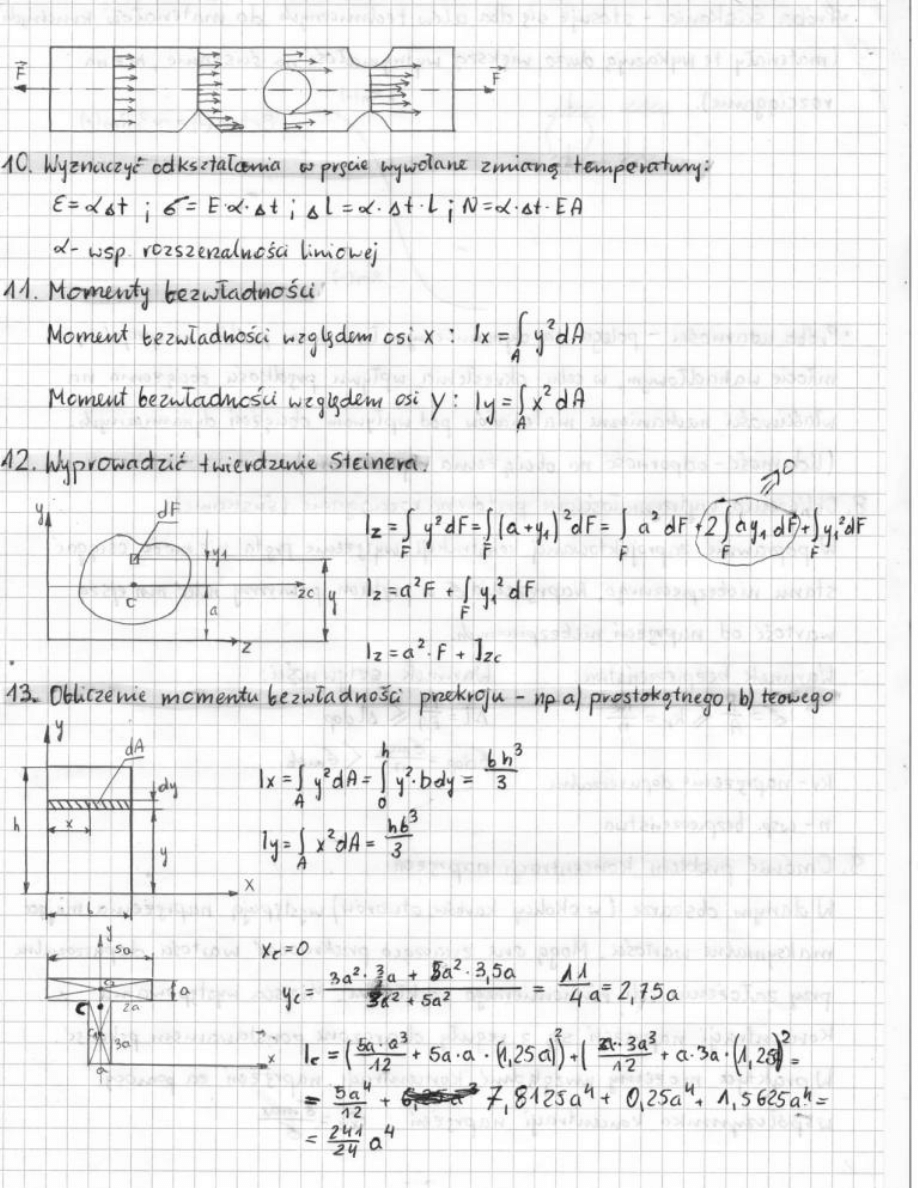 F F
10. Wyznaczyć odkształcenia w pręcie wywołane zmianą temperatury:
ε = α Δt ; σ = E·α·Δt ; Δl = α·Δt·L ; N = α·Δt·EA
α - wsp. rozszerzalności liniowej
11. Momenty bezwładności
Moment bezwładności względem osi x : Ix = ∫_A y² dA
Moment bezwładności względem osi y : Iy = ∫_A x² dA
12. Wyprowadzić twierdzenie Steinera.
y dF y₁ zc y C a z
Iz = ∫_F y² dF = ∫_F (a + y₁)² dF = ∫_F a² dF + 2∫_F a y₁ dF + ∫_F y₁² dF
0
Iz = a²F + ∫_F y₁² dF
Iz = a²·F + Izc
13. Obliczenie momentu bezwładności przekroju - np a) prostokątnego, b) teowego
y dA dy h x y x
Ix = ∫_A y² dA = ∫_0^h y²·b dy = bh³/3
Iy = ∫_A x² dA = hb³/3
y 5a a 2a C 3a a x
xc = 0
yc = (3a²·(3/2)a + 5a²·3,5a)/(3a² + 5a²) = 11/4 a = 2,75a
Ic = (5a·a³/12 + 5a·a·(1,25a)²) + (a·3a³/12 + a·3a·(1,25)² =
= 5a⁴/12 + 7,8125a⁴ + 0,25a⁴ + 1,5625a⁴ =
= 241/24 a⁴